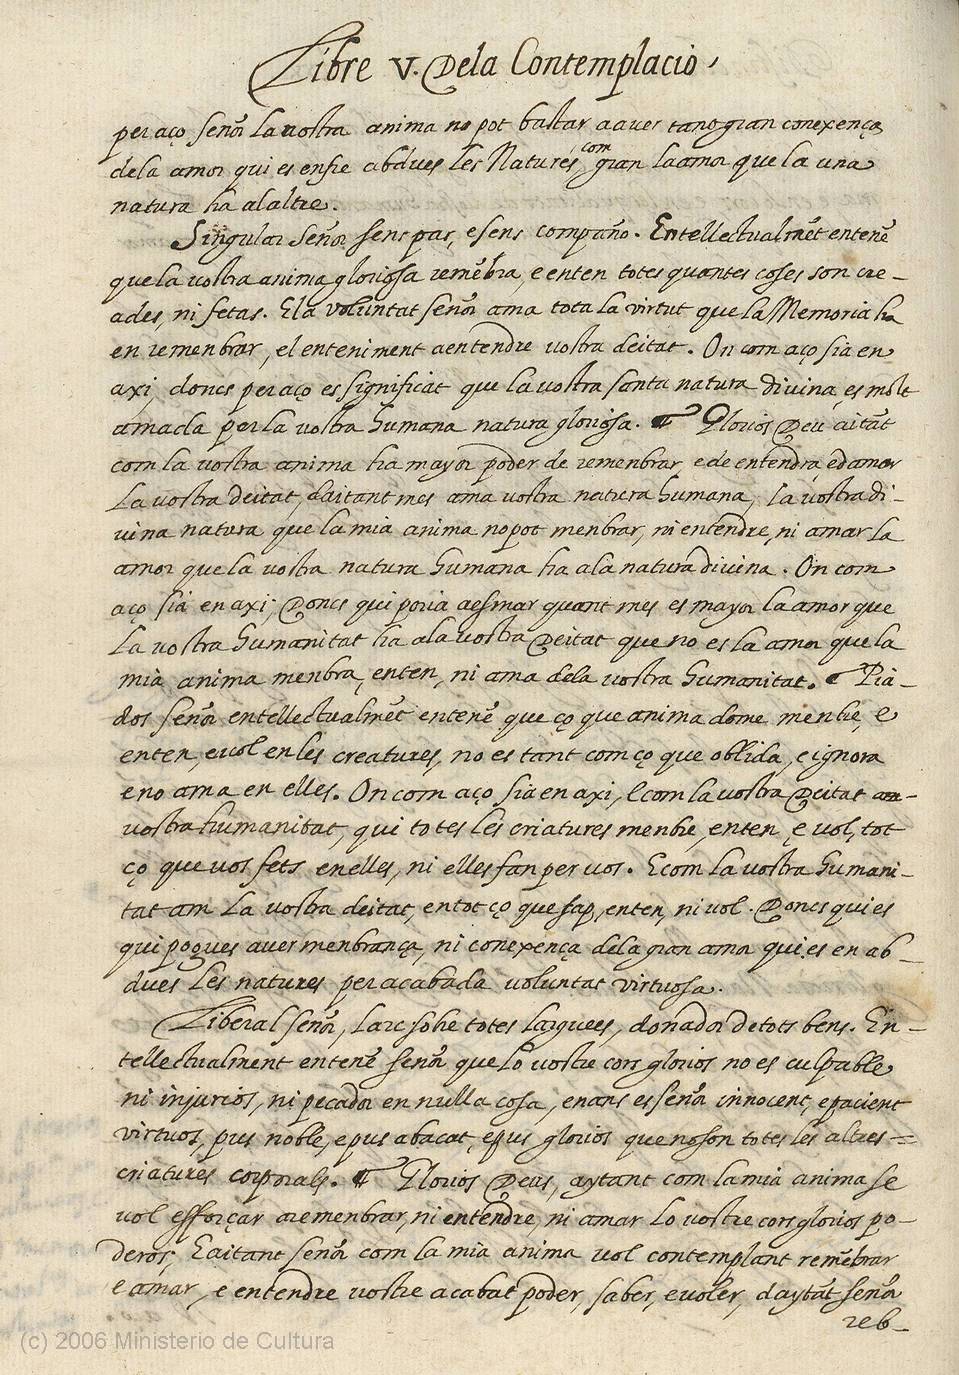 Libre V. Dela Contemplacio,
per aço señor la vostra anima no pot bastar a aver tano gran conexença
dela amor qui es enfre abdues les Natures, com gran la amor que la una
natura ha alaltre.
Singular Señor sens par, e sens compaño. Entellectualmẽt entenẽ
que la vostra anima gloriosa remẽbra, e enten totes quantes coses son cre-
ades, ni fetas. E la voluntat señor ama tota la virtut que la Memoria ha
en remenbrar, el enteniment a entendre vostra deitat. On com aço sia en
axi, doncs per aço es significat que la vostra santa natura divina, es molt
amada per la vostra humana natura gloriosa. Glorios Deu aitãt
com la vostra anima ha mayor poder de remenbrar, e de entendra, e damar
la vostra deitat, daitant mes ama vostra natura humana, la vostra di-
vina natura que la mia anima no pot menbrar, ni entendre, ni amar la
amor que la vostra natura humana ha ala natura divina. On com
aço sia en axi; Doncs qui poria aesmar quant mes es mayor la amor que
la vostra humanitat ha ala vostra Deitat que no es la amor que la
mia anima menbra, enten, ni ama dela vostra humanitat. Pia-
dos señor entellectualmẽt entenẽ que ço que anima dome menbre, e
enten, e vol en les creatures, no es tant com ço que oblida, e ignora
e no ama en elles. On com aço sia en axi, E com la vostra Deitat am-
vostra humanitat, qui totes les criatures menbre, enten, e vol, tot
ço que vos fets en elles, ni elles fan per vos. E com la vostra humani-
tat am la vostra deitat, en tot ço que sap, enten, ni vol. Doncs qui es
qui pogues aver menbrança, ni conexença dela gran amor qui es en ab-
dues les natures per acabada voluntat virtuosa.
Liberal señor, larc sobre totes larguees, donador de tots bens. En-
tellectualment entenẽ señor que lo vostre cors glorios no es culpable
ni injurios, ni pecador en nulla cosa, enans es señor innocent, e pacient
virtuos, pus noble, e pus abacat, e pus glorios que no son totes les altres
criatures corporals. Glorios Deus, aytant com la mia anima se
vol efforçar a remenbrar, ni entendre, ni amar lo vostre cors glorios po-
deros, E aitant señor com la mia anima vol contemplant remẽbrar
e amar, e entendre vostre acabat poder, saber, e voler, daytãt señor
reb-
(c) 2006 Ministerio de Cultura